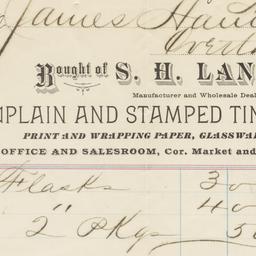 James Hau
Bought of S. H. LAN
Manufacturer and Wholesale Deal
PLAIN AND STAMPED TIN
PRINT AND WRAPPING PAPER, GLASSWA
OFFICE AND SALESROOM, Cor. Market and
Flasks 30
" 40
2 Pkgs 50